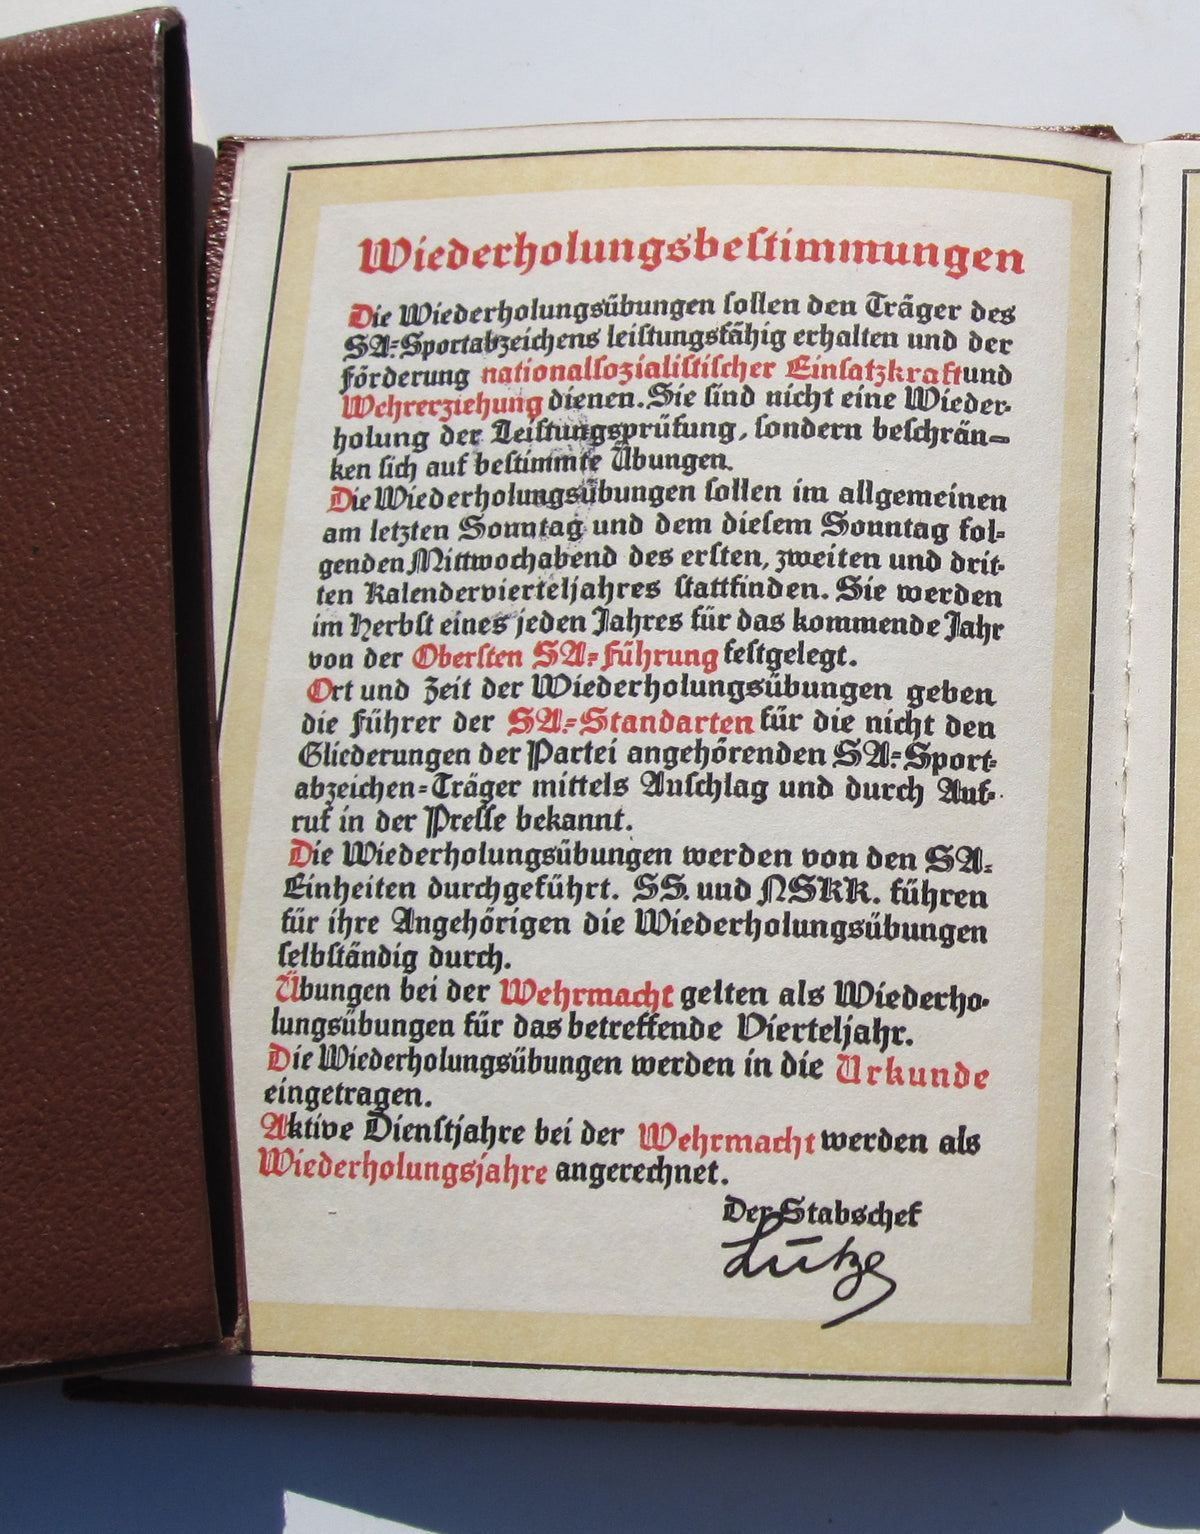 Wiederholungsbestimmungen
Die Wiederholungsübungen sollen den Träger des
SA=Sportabzeichens leistungsfähig erhalten und der
Förderung nationalsozialistischer Einsatzkraft und
Wehrerziehung dienen. Sie sind nicht eine Wieder-
holung der Leistungsprüfung, sondern beschrän=
ken sich auf bestimmte Übungen.
Die Wiederholungsübungen sollen im allgemeinen
am letzten Sonntag und dem diesem Sonntag fol=
genden Mittwochabend des ersten, zweiten und drit=
ten Kalendervierteljahres stattfinden. Sie werden
im Herbst eines jeden Jahres für das kommende Jahr
von der Obersten SA=Führung festgelegt.
Ort und Zeit der Wiederholungsübungen geben
die Führer der SA=Standarten für die nicht den
Gliederungen der Partei angehörenden SA=Sport=
abzeichen=Träger mittels Anschlag und durch Auf=
ruf in der Presse bekannt.
Die Wiederholungsübungen werden von den SA=
Einheiten durchgeführt. SS. und NSKK. führen
für ihre Angehörigen die Wiederholungsübungen
selbständig durch.
Übungen bei der Wehrmacht gelten als Wiederho-
lungsübungen für das betreffende Vierteljahr.
Die Wiederholungsübungen werden in die Urkunde
eingetragen.
Aktive Dienstjahre bei der Wehrmacht werden als
Wiederholungsjahre angerechnet.
Der Stabschef
Lutze